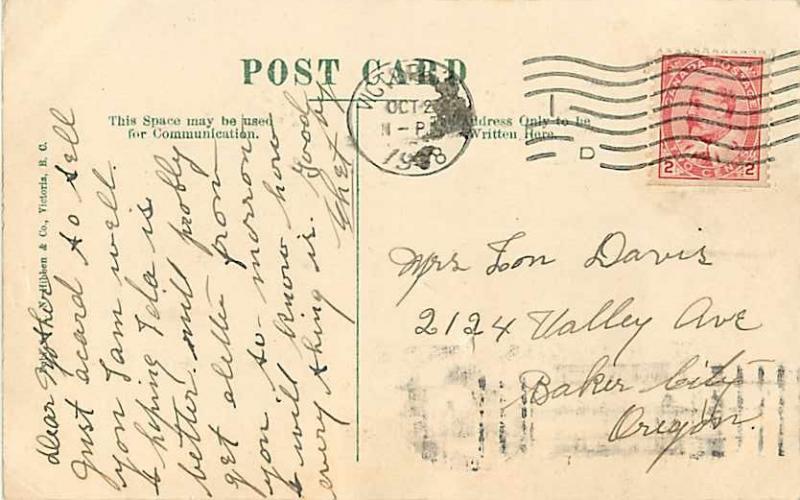 POST CARD
This Space may be used
for Communication.
Address Only to be
Written Here.
Hibben & Co., Victoria, B. C.
VICTORIA
OCT 2
M - P
1908
D
CANADA POSTAGE
2 TWO CENTS 2
Dear Mother
Just acard to tell
you I am well.
& hoping Ida is
better. will probly
get aletter from
you to-morrow
& will know how
every thing is. Good by
Chet
Mrs Lon Davis
2124 Valley Ave
Baker City
Oregon.